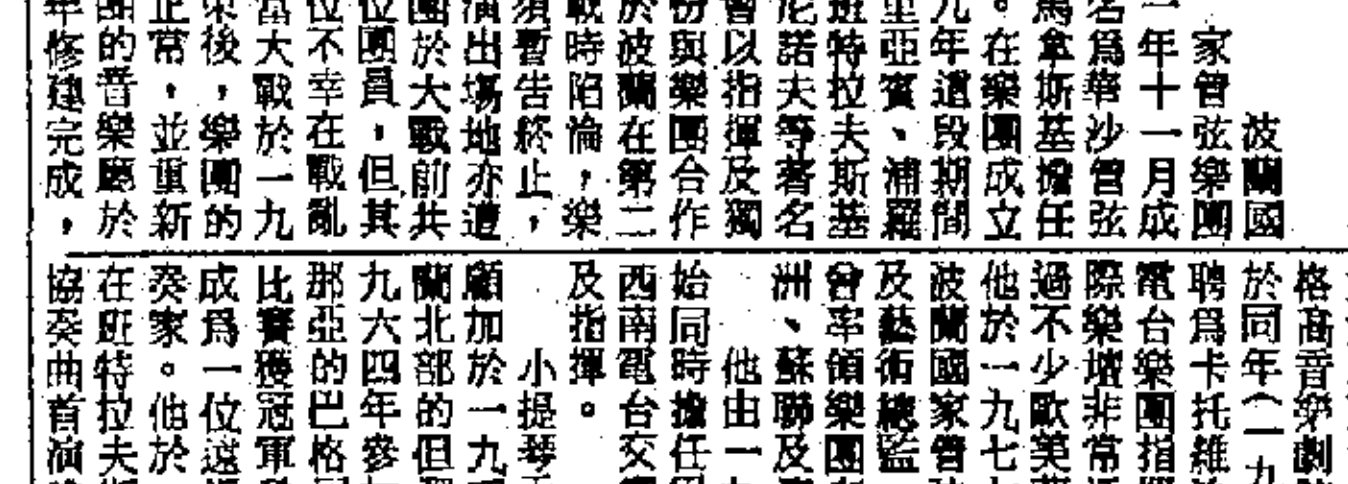 波蘭國
家管弦樂團
一年十一月成
名爲華沙管弦
馬拿斯基擔任
。在樂團成立
九年這段期間
里亞賓、浦羅
班特拉夫斯基
尼諾夫等著名
曾以指揮及獨
份與樂團合作
於波蘭在第二
戰時陷淪，樂
須暫告終止，
演出場地亦遭
團於大戰前共
位團員，但其
位不幸在戰亂
當大戰於一九
束後，樂團的
正常，並重新
團的音樂廳於
年修建完成，
格高音樂劇
於同年(一九
聘爲卡托維
電台樂團指
際樂壇非常
過不少歐美
他於一九七
波蘭國家管
及藝術總監
曾率領樂團
洲、蘇聯及
他由一
始同時擔任
西南電台交
及指揮。
小提琴
顧加於一九
蘭北部的但
九六四年參
那亞的巴格
比賽獲冠軍
成爲一位遠
奏家。他於
在班特拉夫
協奏曲首演